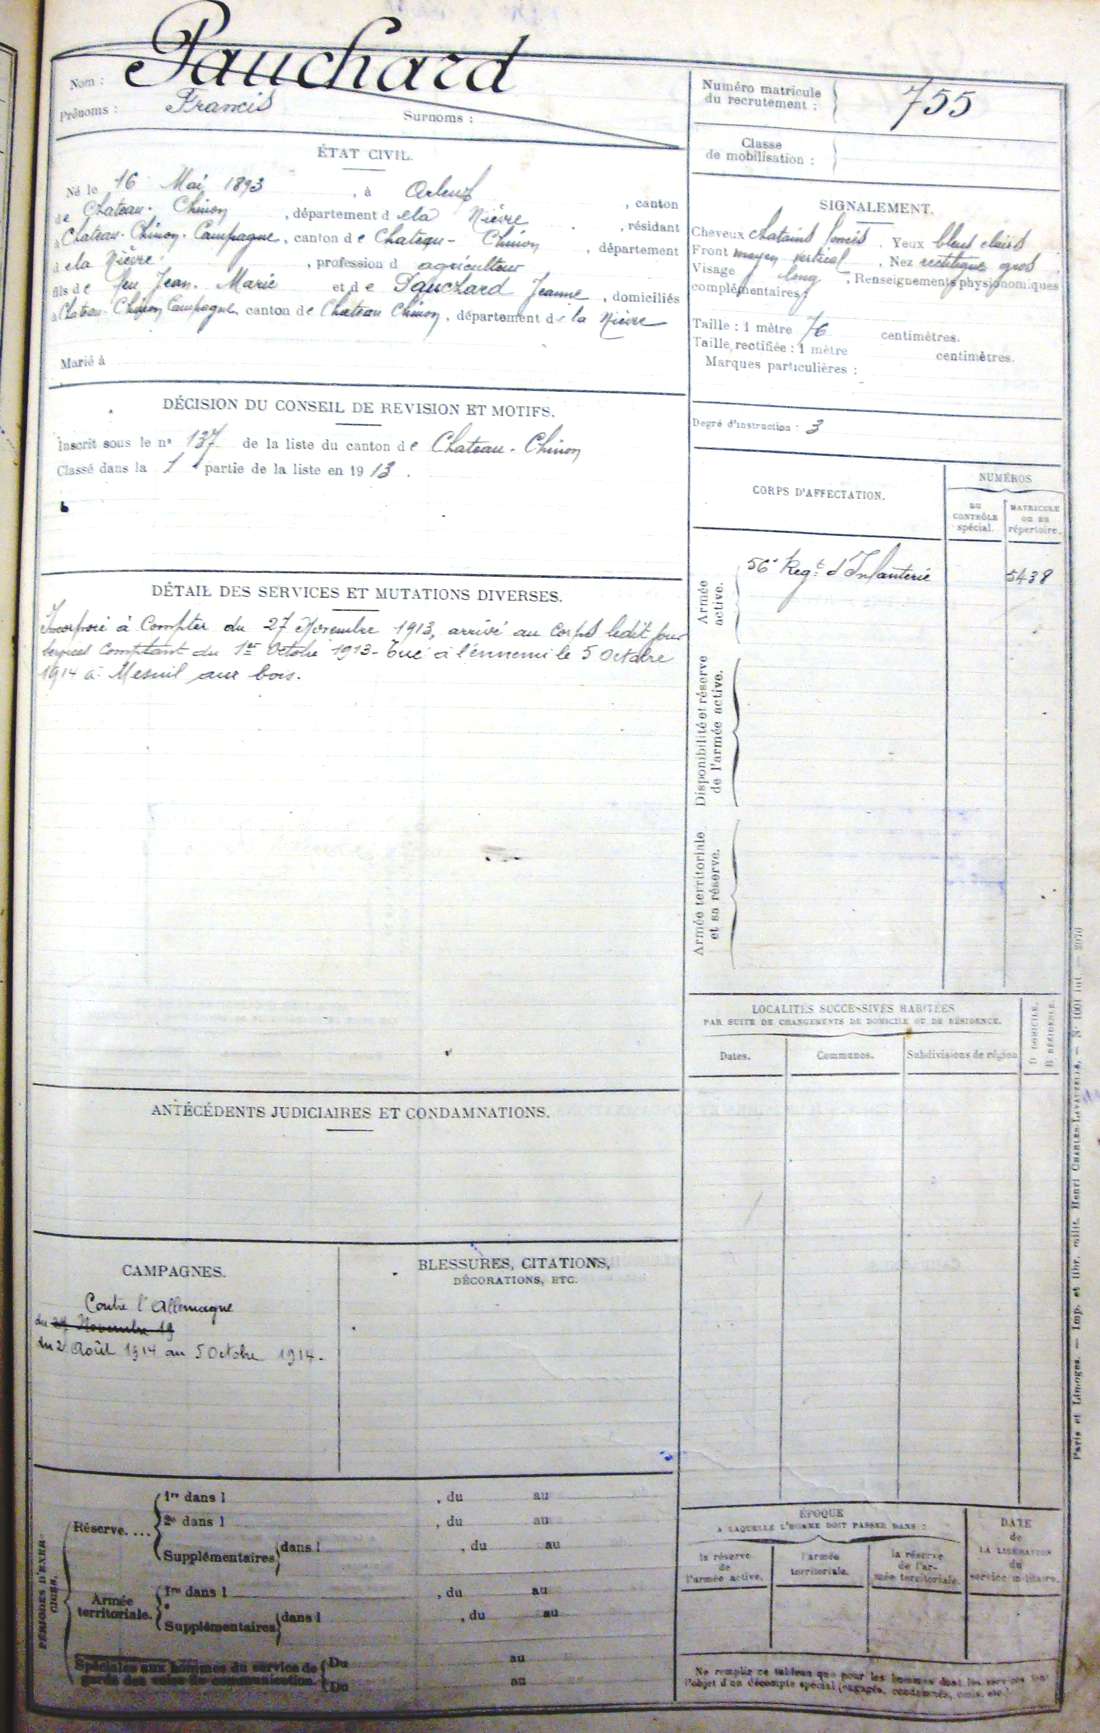 Nom : Pauchard
Prénoms : Francis Surnoms :
Numéro matricule du recrutement : 755
Classe de mobilisation :
ÉTAT CIVIL.
Né le 16 Mai 1893, à Arleuf, canton
de Chateau-Chinon, département de la Nièvre, résidant
à Chateau-Chinon-Campagne, canton de Chateau-Chinon, département
de la Nièvre, profession d agriculteur
fils de feu Jean-Marie et de Pauchard Jeanne, domiciliés
à Chateau-Chinon Campagne, canton de Chateau Chinon, département de la Nièvre
Marié à
SIGNALEMENT.
Cheveux chatains foncés. Yeux bleus clairs
Front moyen vertical, Nez rectiligne gros
Visage long, Renseignements physionomiques
complémentaires :
Taille : 1 mètre 76 centimètres.
Taille rectifiée : 1 mètre centimètres.
Marques particulières :
Degré d'instruction : 3
DÉCISION DU CONSEIL DE REVISION ET MOTIFS.
Inscrit sous le n° 137 de la liste du canton de Chateau-Chinon
Classé dans la 1 partie de la liste en 1913.
CORPS D'AFFECTATION.
NUMÉROS
AU CONTRÔLE spécial.
MATRICULE OU AU répertoire.
Armée active.
56e Regt d'Infanterie 5438
Disponibilité et réserve de l'armée active.
Armée territoriale et sa réserve.
DÉTAIL DES SERVICES ET MUTATIONS DIVERSES.
Incorporé à Compter du 27 Novembre 1913, arrivé au Corps ledit jour
services Comptant du 1er Octobre 1913 - Tué à l'ennemi le 5 Octobre
1914 à Mesnil aux bois.
LOCALITÉS SUCCESSIVES HABITÉES
PAR SUITE DE CHANGEMENTS DE DOMICILE OU DE RÉSIDENCE.
Dates. Communes. Subdivisions de région
D. DOMICILE.
R. RÉSIDENCE.
ANTÉCÉDENTS JUDICIAIRES ET CONDAMNATIONS.
CAMPAGNES.
Contre l'Allemagne
du 27 Novembre 19
du 2 Août 1914 au 5 Octobre 1914.
BLESSURES, CITATIONS,
DÉCORATIONS, ETC.
PÉRIODES D'EXERCICES.
Réserve....
1re dans l , du au
2e dans l , du au
Supplémentaires dans l , du au
Armée territoriale.
1re dans l , du au
Supplémentaires dans l , du au
Spéciales aux hommes du service de garde des voies de communication. Du au
Du au
ÉPOQUE
A LAQUELLE L'HOMME DOIT PASSER DANS :
la réserve de l'armée active.
l'armée territoriale.
la réserve de l'armée territoriale.
DATE de LA LIBÉRATION du service militaire.
Ne remplir ce tableau que pour les hommes dont les services font
l'objet d'un décompte spécial (engagés, condamnés, omis, etc.)
Paris et Limoges. — Imp. et libr. milit. Henri CHARLES-LAVAUZELLE.